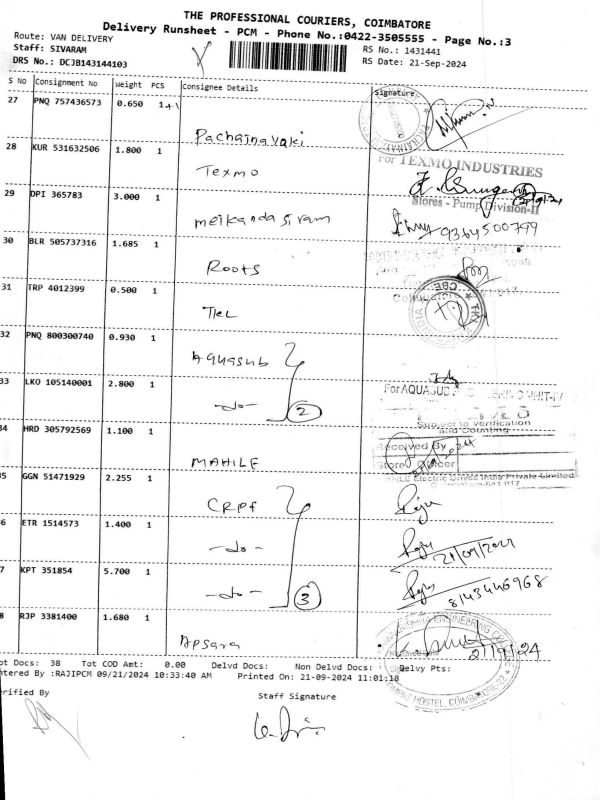 THE PROFESSIONAL COURIERS, COIMBATORE
Delivery Runsheet - PCM - Phone No.:0422-3505555 - Page No.:3
Route: VAN DELIVERY
Staff: SIVARAM
RS No.: 1431441
DRS No.: DCJB143144103
RS Date: 21-Sep-2024
S No Consignment No Weight PCS Consignee Details Signature
27 PNQ 757436573 0.650 1+1
Pachainayaki
28 KUR 531632506 1.800 1
For TEXMO INDUSTRIES
Texmo
Stores - Pump Division-II
29 DPI 365783 3.000 1
meikanda sivam
9364500799
30 BLR 505737316 1.685 1
Roots
31 TRP 4012399 0.500 1
CBE
TKL
32 PNQ 800300740 0.930 1
Aquasub
33 LKO 105140001 2.800 1
For AQUASUB
-do- 2
Subject to Verification
and Counting
34 HRD 305792569 1.100 1
Received By
MAHILE
Store Officer
Electric Drives India Private Limited
35 GGN 51471929 2.255 1
CRPF
Raju
36 ETR 1514573 1.400 1
-do-
Raju
21/09/2024
37 KPT 351854 5.700 1
-do- 3
Raju
8143446968
38 RJP 3381400 1.680 1
Apsara
ENGINEERING
HOSTEL, COIMBATORE-22
Tot Docs: 38 Tot COD Amt: 0.00 Delvd Docs: Non Delvd Docs: Delvy Pts:
Entered By :RAJIPCM 09/21/2024 10:33:40 AM Printed On: 21-09-2024 11:01:18
Verified By
Staff Signature